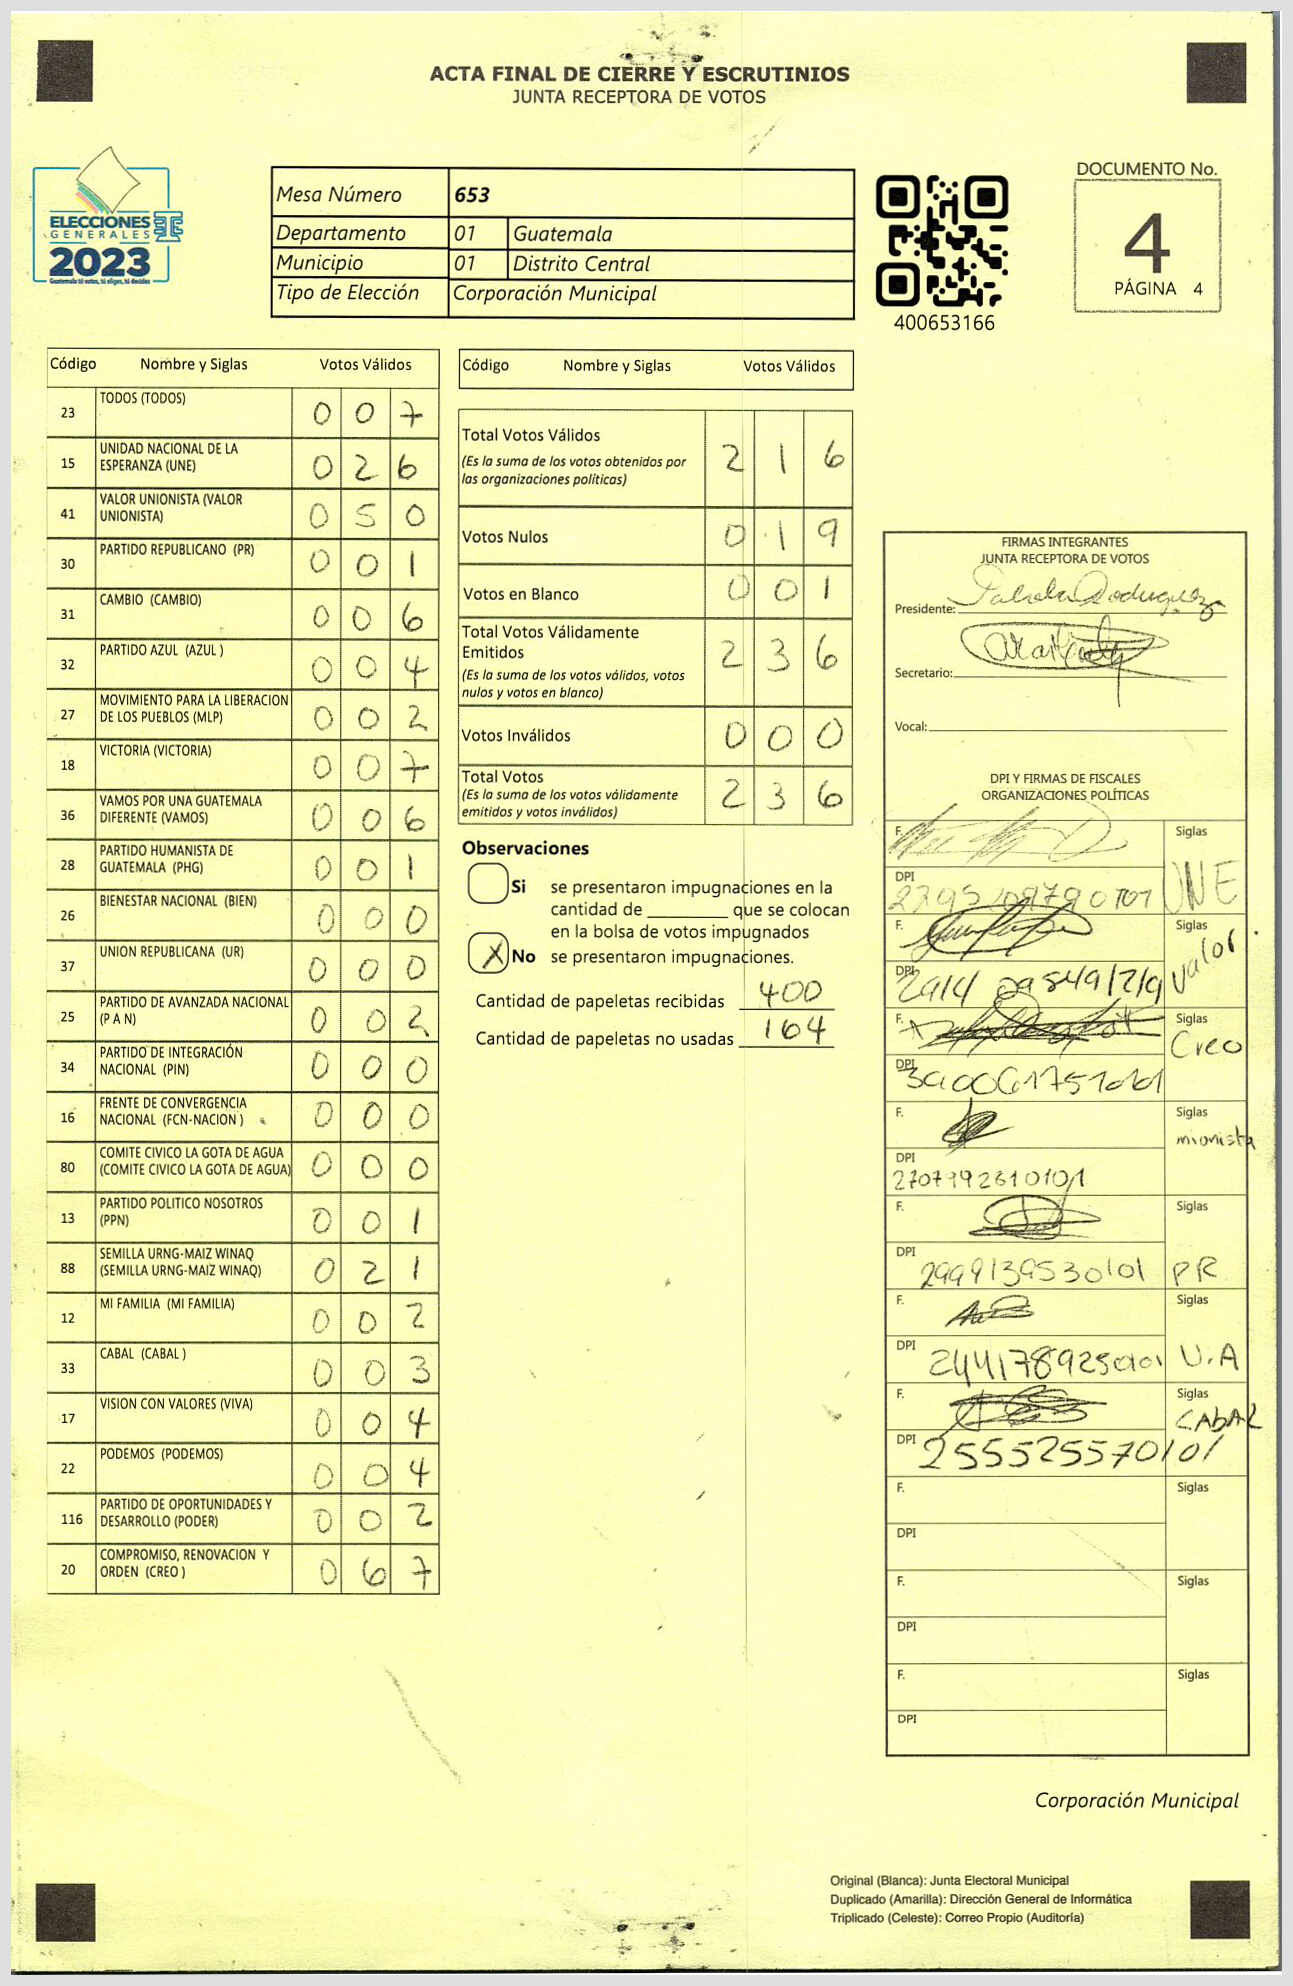 ACTA FINAL DE CIERRE Y ESCRUTINIOS
JUNTA RECEPTORA DE VOTOS
ELECCIONES
GENERALES
2023
Guatemala tú votas, tú eliges, tú decides
Mesa Número 653
Departamento 01 Guatemala
Municipio 01 Distrito Central
Tipo de Elección Corporación Municipal
400653166
DOCUMENTO No.
4
PÁGINA 4
Código Nombre y Siglas Votos Válidos
23 TODOS (TODOS) 0 0 7
15 UNIDAD NACIONAL DE LA
ESPERANZA (UNE) 0 2 6
41 VALOR UNIONISTA (VALOR
UNIONISTA) 0 5 0
30 PARTIDO REPUBLICANO (PR) 0 0 1
31 CAMBIO (CAMBIO) 0 0 6
32 PARTIDO AZUL (AZUL ) 0 0 4
27 MOVIMIENTO PARA LA LIBERACION
DE LOS PUEBLOS (MLP) 0 0 2
18 VICTORIA (VICTORIA) 0 0 7
36 VAMOS POR UNA GUATEMALA
DIFERENTE (VAMOS) 0 0 6
28 PARTIDO HUMANISTA DE
GUATEMALA (PHG) 0 0 1
26 BIENESTAR NACIONAL (BIEN) 0 0 0
37 UNION REPUBLICANA (UR) 0 0 0
25 PARTIDO DE AVANZADA NACIONAL
(P A N) 0 0 2
34 PARTIDO DE INTEGRACIÓN
NACIONAL (PIN) 0 0 0
16 FRENTE DE CONVERGENCIA
NACIONAL (FCN-NACION ) 0 0 0
80 COMITE CIVICO LA GOTA DE AGUA
(COMITE CIVICO LA GOTA DE AGUA) 0 0 0
13 PARTIDO POLITICO NOSOTROS
(PPN) 0 0 1
88 SEMILLA URNG-MAIZ WINAQ
(SEMILLA URNG-MAIZ WINAQ) 0 2 1
12 MI FAMILIA (MI FAMILIA) 0 0 2
33 CABAL (CABAL ) 0 0 3
17 VISION CON VALORES (VIVA) 0 0 4
22 PODEMOS (PODEMOS) 0 0 4
116 PARTIDO DE OPORTUNIDADES Y
DESARROLLO (PODER) 0 0 2
20 COMPROMISO, RENOVACION Y
ORDEN (CREO ) 0 6 7
Código Nombre y Siglas Votos Válidos
Total Votos Válidos 2 1 6
(Es la suma de los votos obtenidos por
las organizaciones políticas)
Votos Nulos 0 1 9
Votos en Blanco 0 0 1
Total Votos Válidamente
Emitidos 2 3 6
(Es la suma de los votos válidos, votos
nulos y votos en blanco)
Votos Inválidos 0 0 0
Total Votos 2 3 6
(Es la suma de los votos válidamente
emitidos y votos inválidos)
Observaciones
Si se presentaron impugnaciones en la
cantidad de ________ que se colocan
en la bolsa de votos impugnados
X No se presentaron impugnaciones.
Cantidad de papeletas recibidas 400
Cantidad de papeletas no usadas 164
FIRMAS INTEGRANTES
JUNTA RECEPTORA DE VOTOS
Presidente:
Secretario:
Vocal:
DPI Y FIRMAS DE FISCALES
ORGANIZACIONES POLÍTICAS
F. Siglas
DPI UNE
F. Siglas
DPI Valor
F. Siglas
Creo
DPI
F. Siglas
mionista
DPI 2707792610101
F. Siglas
DPI 2999139530101 PR
F. Siglas
DPI 2441789250101 U.A
F. Siglas
CABAL
DPI 2555255570101
F. Siglas
DPI
F. Siglas
DPI
F. Siglas
DPI
Corporación Municipal
Original (Blanca): Junta Electoral Municipal
Duplicado (Amarilla): Dirección General de Informática
Triplicado (Celeste): Correo Propio (Auditoría)